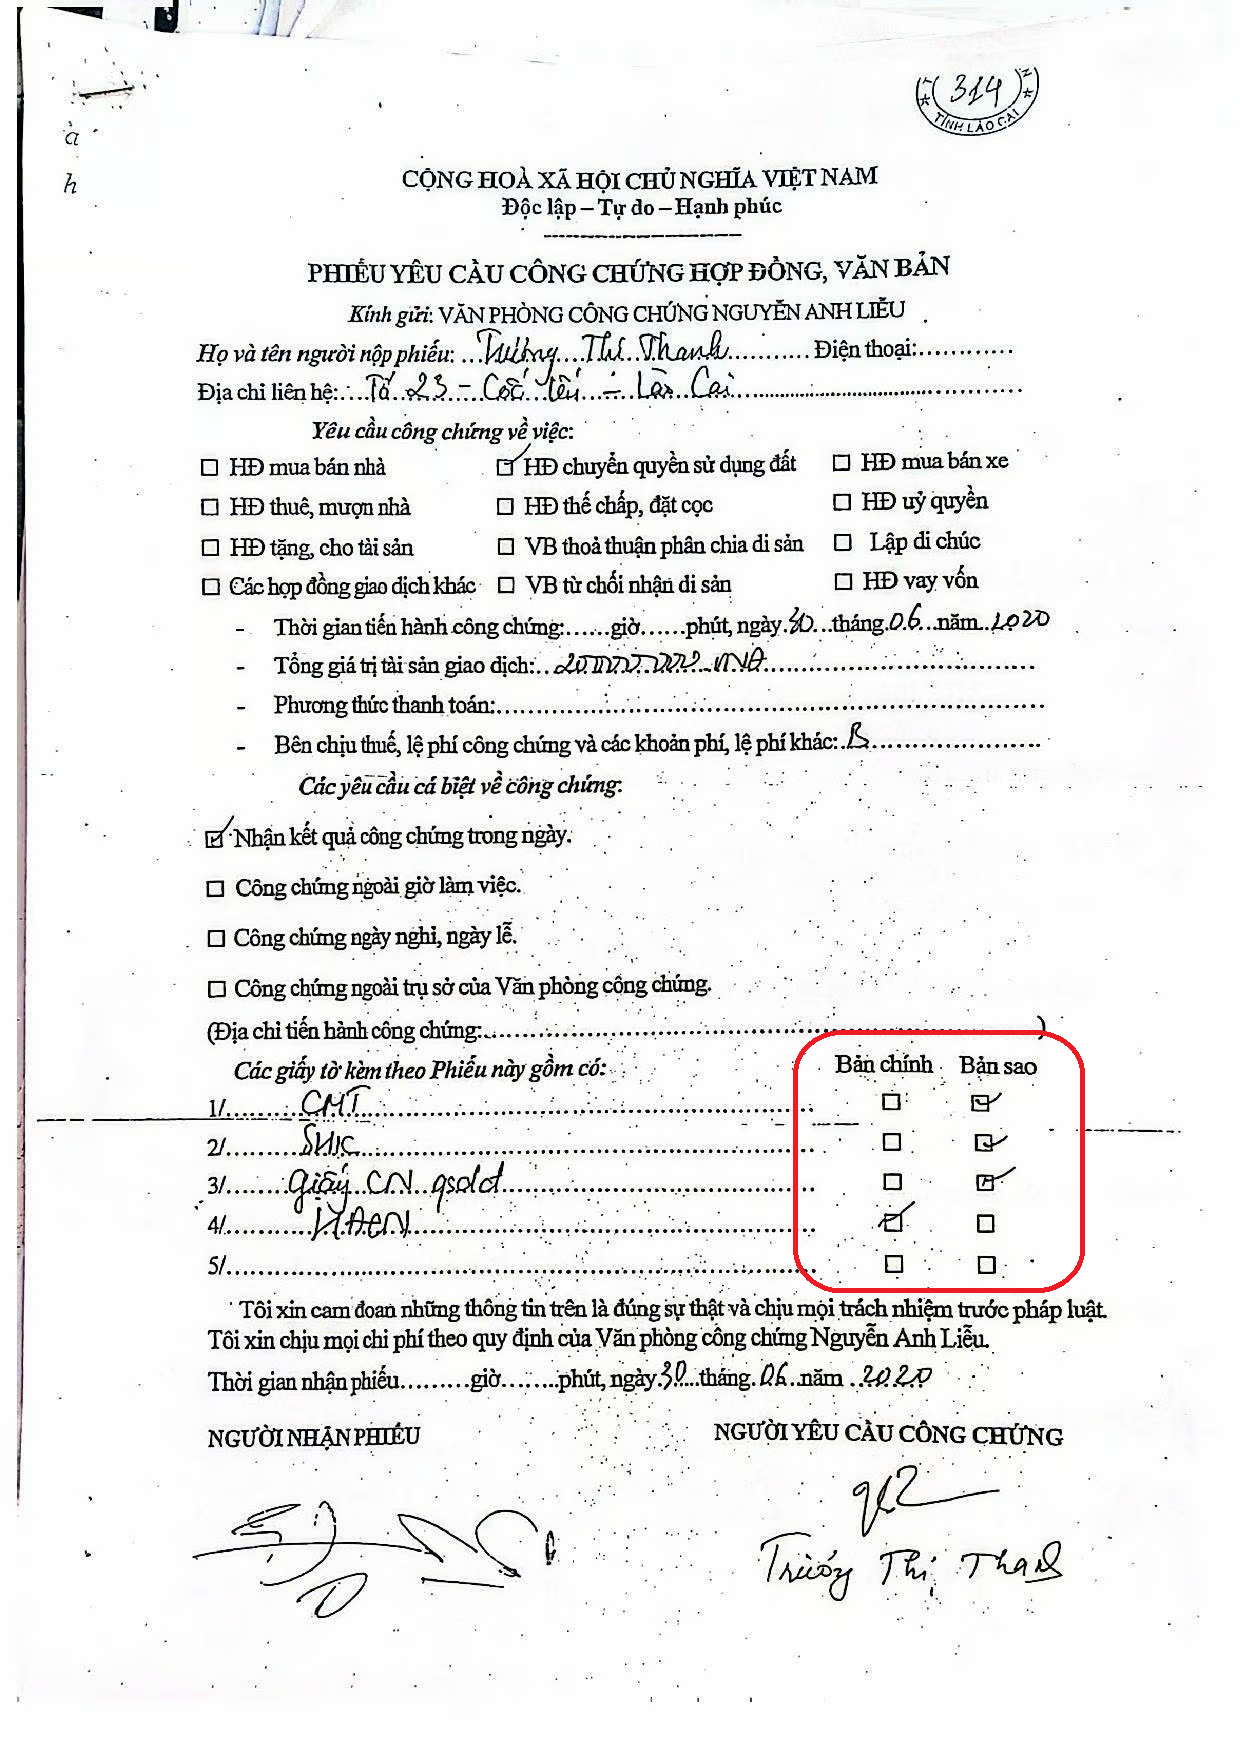 (314)
TỈNH LÀO CAI
à
h
CỘNG HOÀ XÃ HỘI CHỦ NGHĨA VIỆT NAM
Độc lập – Tự do – Hạnh phúc
PHIẾU YÊU CẦU CÔNG CHỨNG HỢP ĐỒNG, VĂN BẢN
Kính gửi: VĂN PHÒNG CÔNG CHỨNG NGUYỄN ANH LIỄU
Họ và tên người nộp phiếu: Trương Thị Thanh Điện thoại:
Địa chỉ liên hệ: Tổ 23 - Cốc lếu - Lào Cai
Yêu cầu công chứng về việc:
☐ HĐ mua bán nhà ☑ HĐ chuyển quyền sử dụng đất ☐ HĐ mua bán xe
☐ HĐ thuê, mượn nhà ☐ HĐ thế chấp, đặt cọc ☐ HĐ uỷ quyền
☐ HĐ tặng, cho tài sản ☐ VB thoả thuận phân chia di sản ☐ Lập di chúc
☐ Các hợp đồng giao dịch khác ☐ VB từ chối nhận di sản ☐ HĐ vay vốn
- Thời gian tiến hành công chứng:......giờ......phút, ngày 30 tháng 06 năm 2020
- Tổng giá trị tài sản giao dịch: VNĐ
- Phương thức thanh toán:
- Bên chịu thuế, lệ phí công chứng và các khoản phí, lệ phí khác: B
Các yêu cầu cá biệt về công chứng:
☑ Nhận kết quả công chứng trong ngày.
☐ Công chứng ngoài giờ làm việc.
☐ Công chứng ngày nghỉ, ngày lễ.
☐ Công chứng ngoài trụ sở của Văn phòng công chứng.
(Địa chỉ tiến hành công chứng: )
Các giấy tờ kèm theo Phiếu này gồm có: Bản chính Bản sao
1/ CMT ☐ ☑
2/ SHK ☐ ☑
3/ giấy CN qsdđ ☐ ☑
4/ ☑ ☐
5/ ☐ ☐
Tôi xin cam đoan những thông tin trên là đúng sự thật và chịu mọi trách nhiệm trước pháp luật.
Tôi xin chịu mọi chi phí theo quy định của Văn phòng công chứng Nguyễn Anh Liễu.
Thời gian nhận phiếu.........giờ.......phút, ngày 30 tháng 06 năm 2020
NGƯỜI NHẬN PHIẾU NGƯỜI YÊU CẦU CÔNG CHỨNG
Trương Thị Thanh